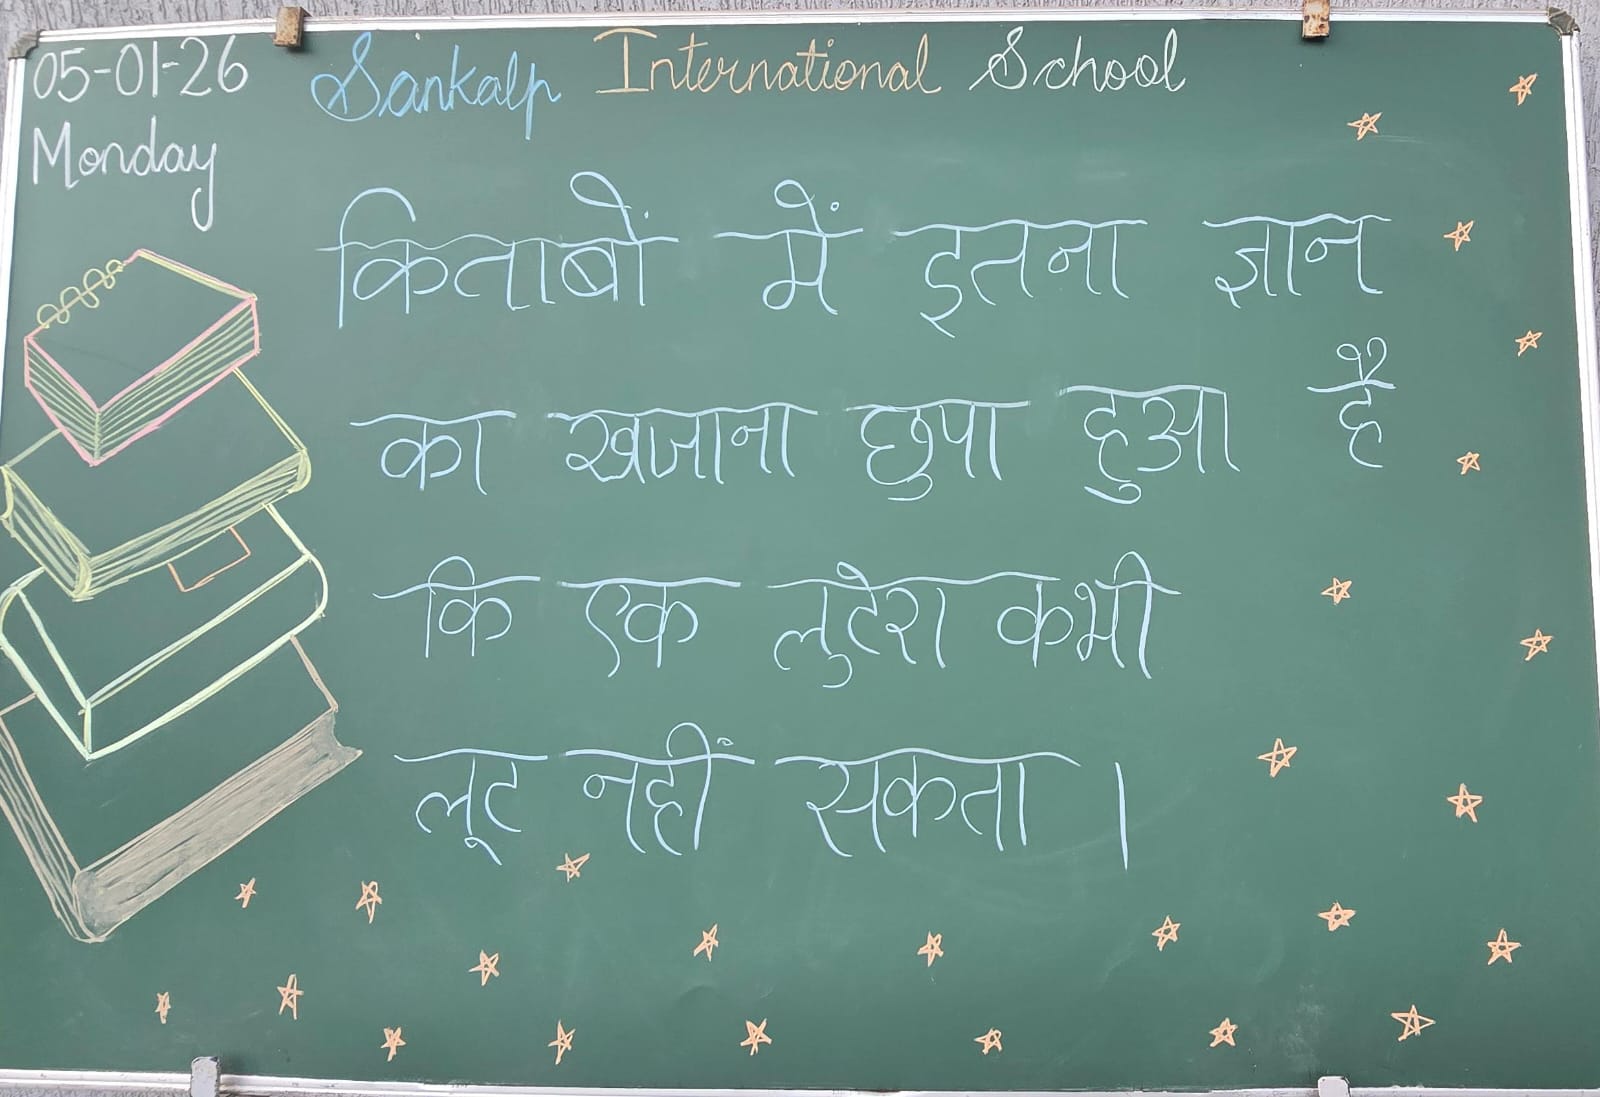 05-01-26 Sankalp International School
Monday
किताबों में इतना ज्ञान
का खजाना छुपा हुआ है
कि एक लुटेरा कभी
लूट नहीं सकता ।